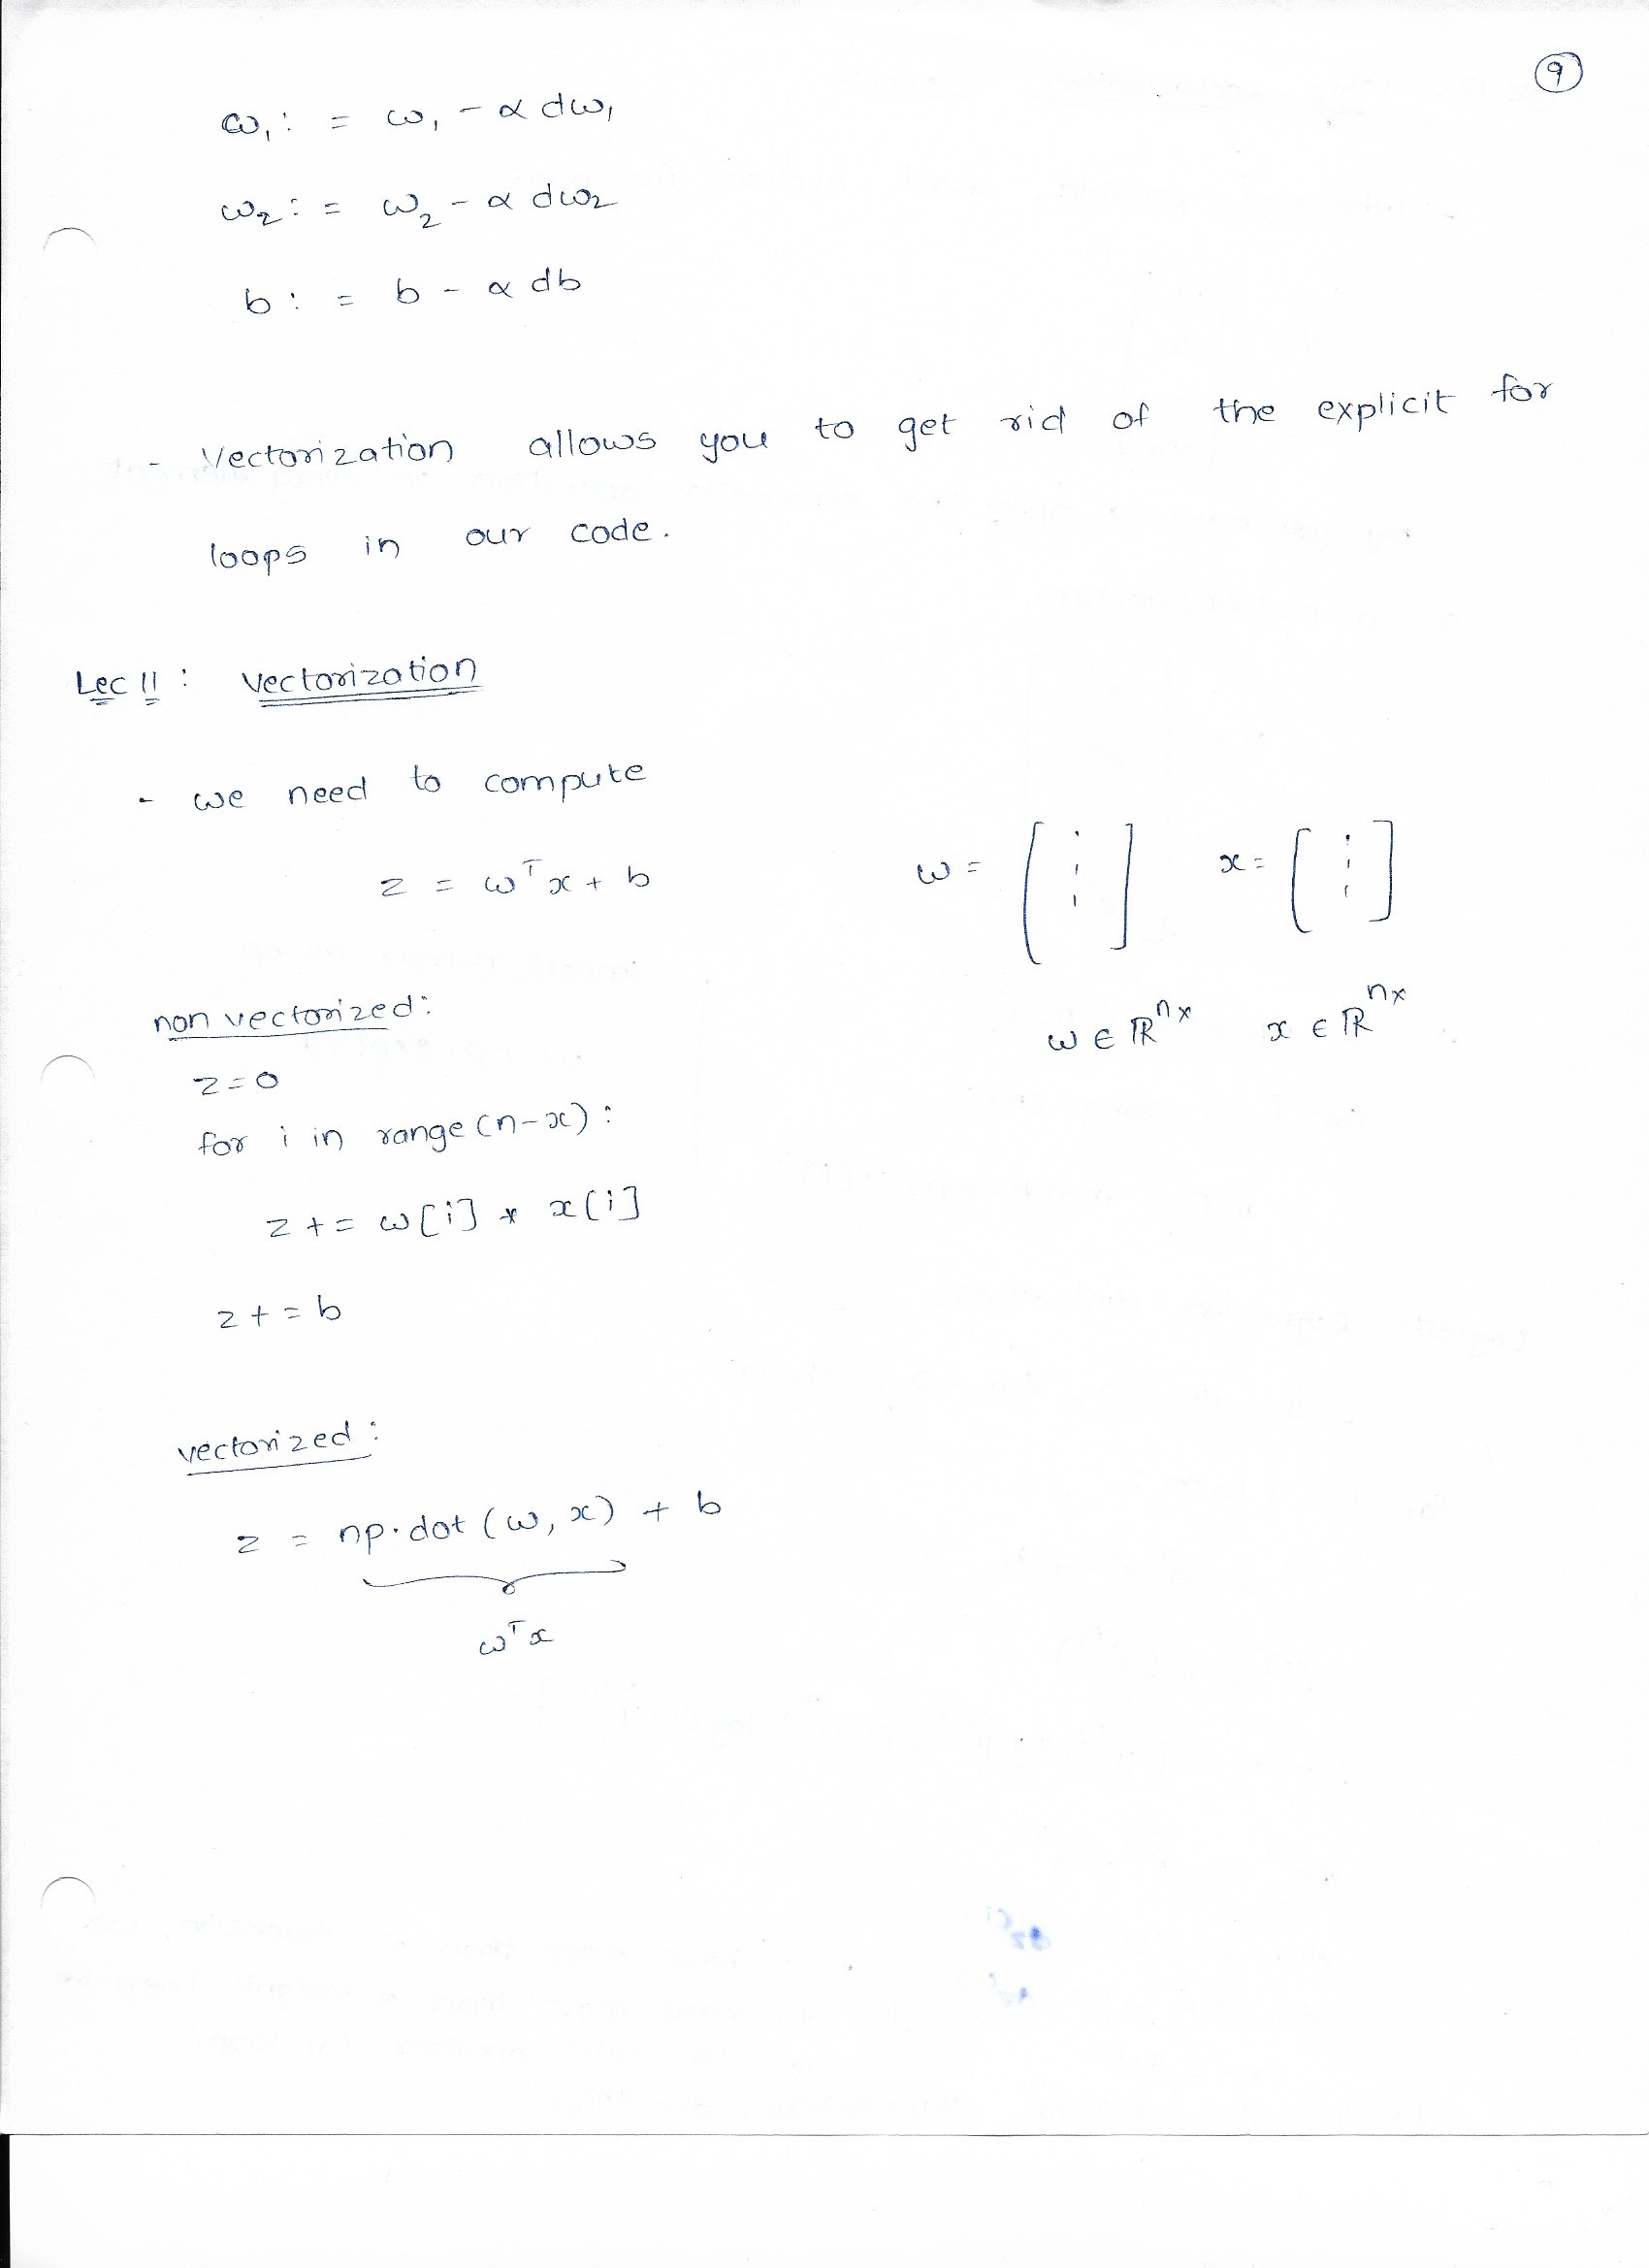 9
ω₁ := ω₁ - α dω₁
ω₂ := ω₂ - α dω₂
b := b - α db
- Vectorization allows you to get rid of the explicit for
loops in our code.
Lec 11: Vectorization
- we need to compute
z = ωᵀx + b
ω = [⋮] x = [⋮]
ω ∈ ℝⁿˣ x ∈ ℝⁿˣ
non vectorized:
z=0
for i in range(n-x):
z += ω[i] * x[i]
z += b
vectorized:
z = np.dot(ω, x) + b
ωᵀx